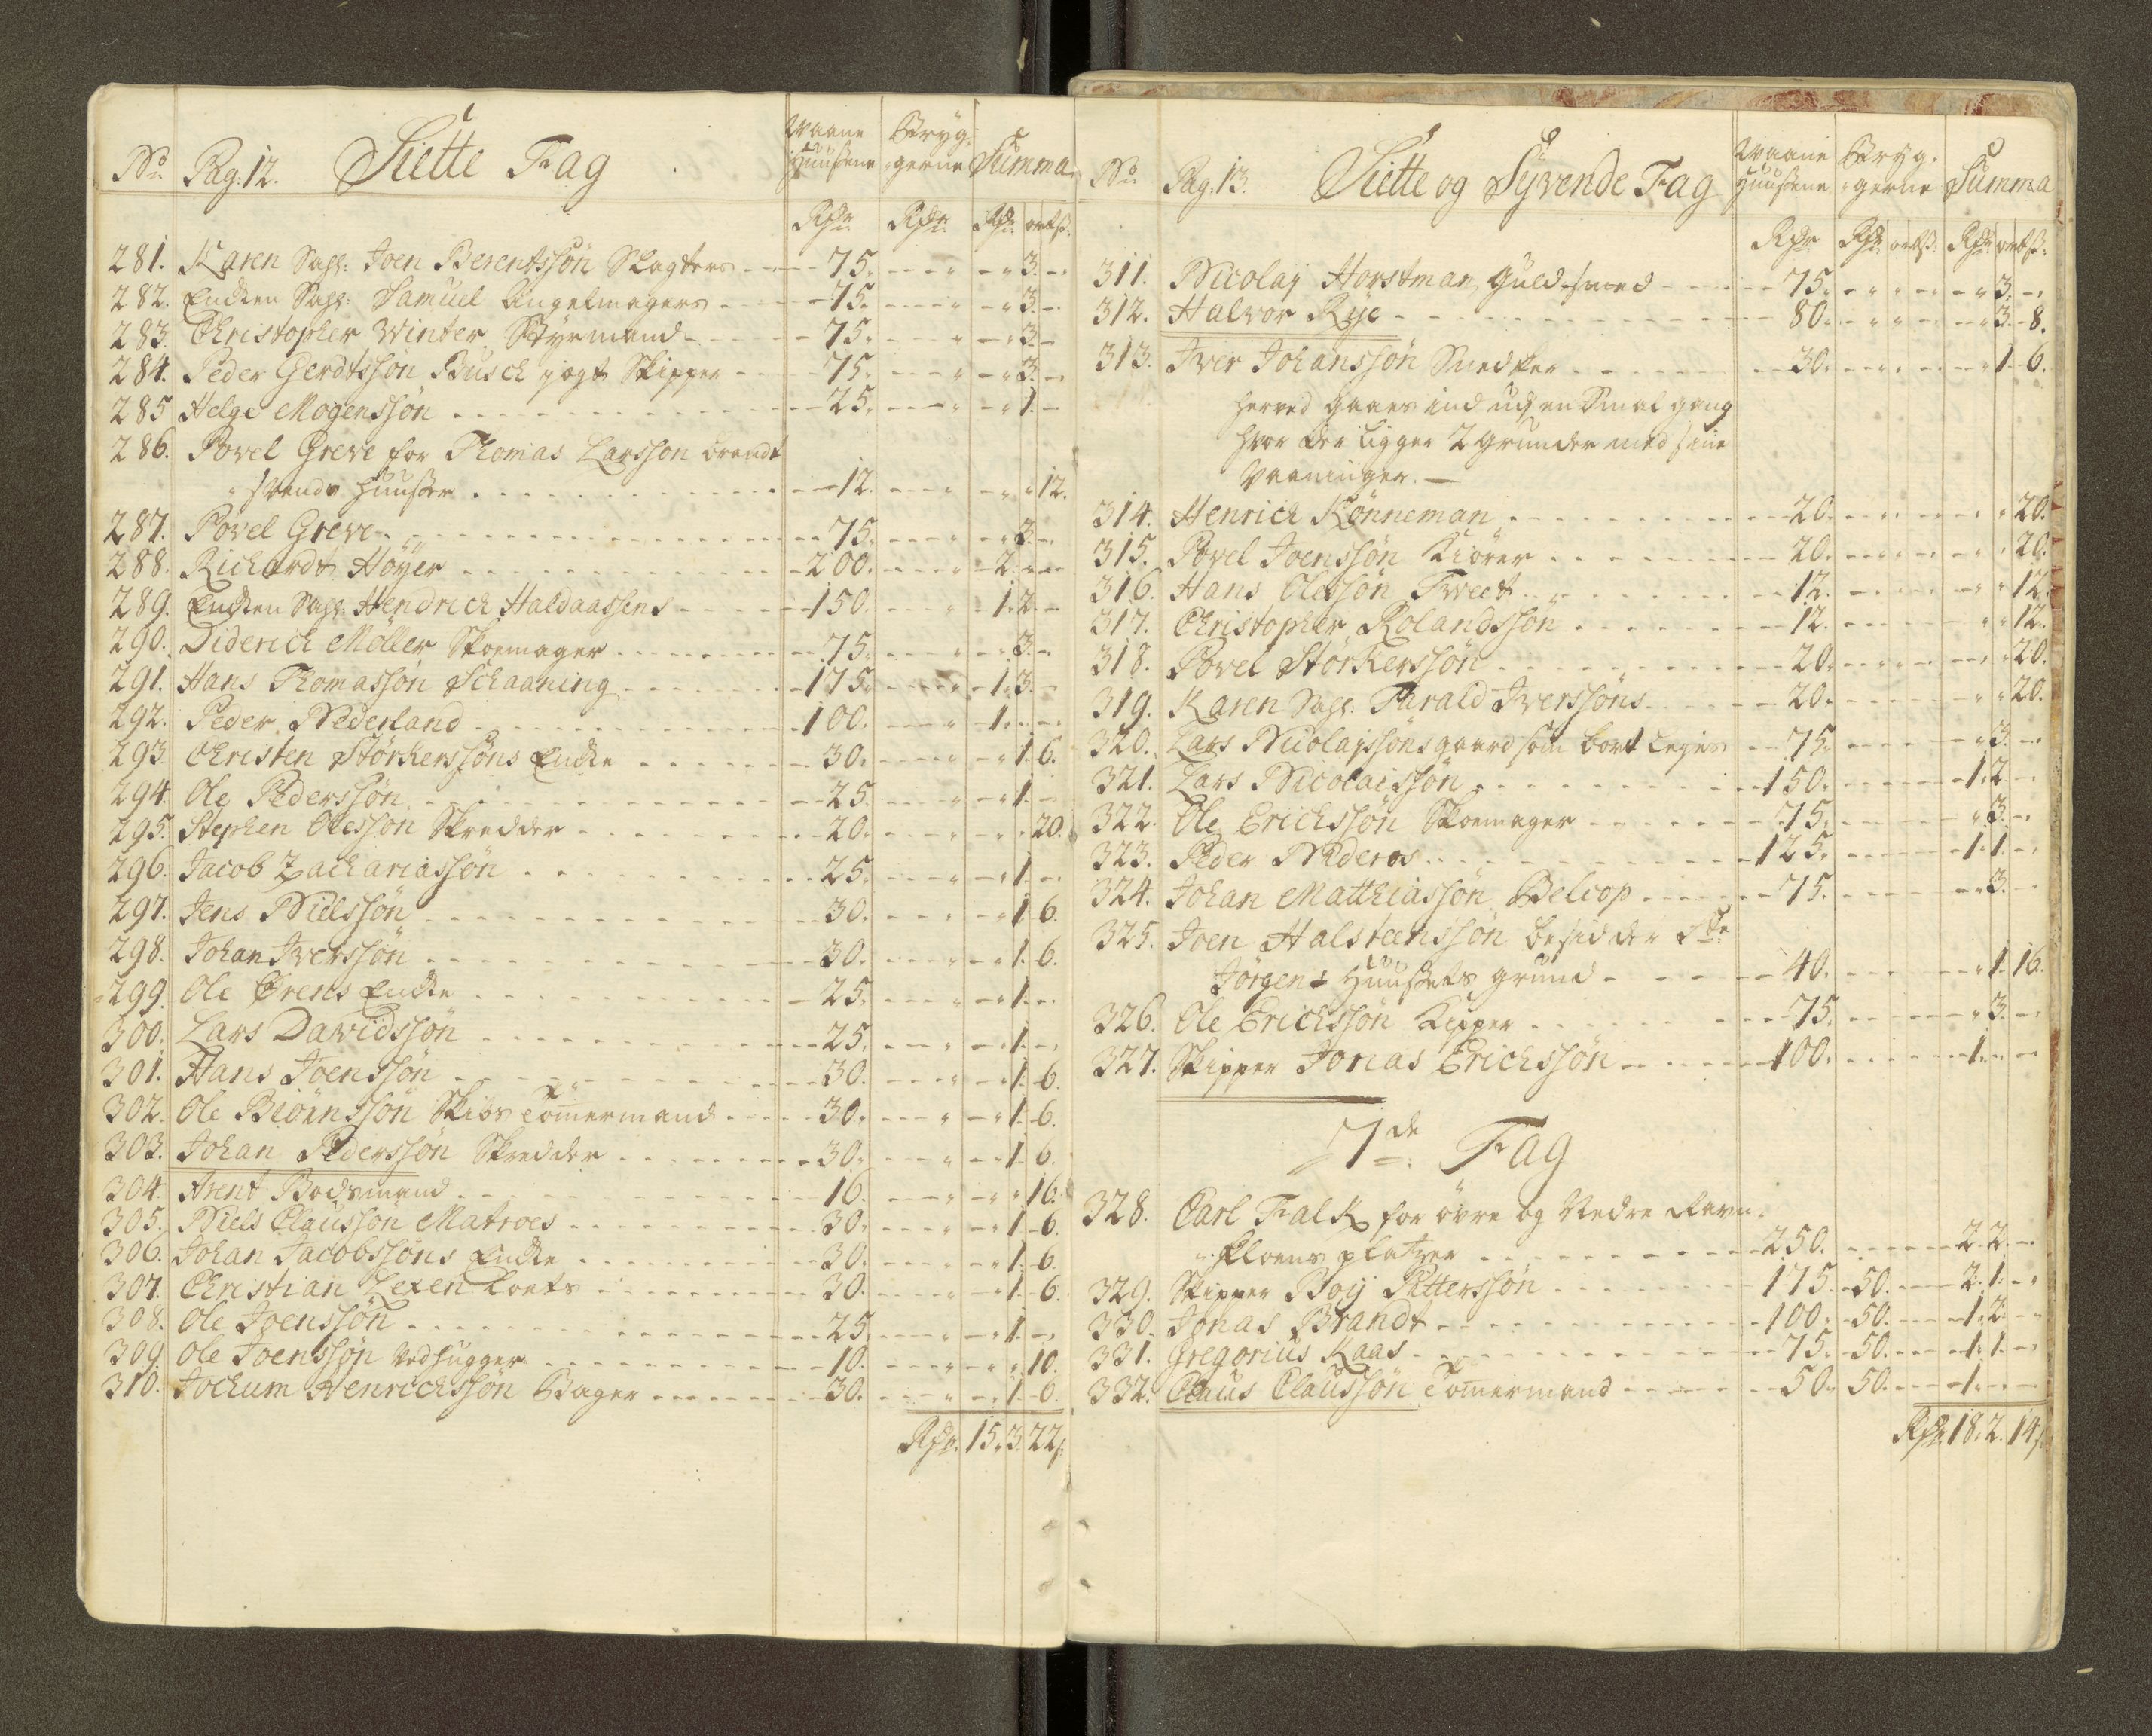 No. Pag: 12. Siette Fag Waane Huußene Bryg: gerne Summa
Rdr. Rdr. Rdr. ort ß.
281. Karen Sahl: Joen Berentssøn Slagters 75. " 3.
282. Enken Sahl: Samuel Angelmagers 75. " 3.
283. Christopher Winter Styrmand 75. " 3.
284. Peder Gerdtssøn Busch jagt Skipper 75. " 3.
285. Helge Mogenssøn 25. " 1.
286. Povel Greve for Thomas Larssøn brendt
svends Huußer 12. " 12.
287. Povel Greve 75. " 3.
288. Richardt Höyer 200. 2.
289. Enken Sahl: Hendrich Haldaassens 150. 1. 2.
290. Diderich Möller Skoemager 75. " 3.
291. Hans Thomassøn Schaaning 175. 1. 3.
292. Peder Nederland 100. 1.
293. Christen Störkerssøns Enke 30. " 1. 6.
294. Ole Pederssøn 25. " 1.
295. Stephen Olessøn Skredder 20. " 20.
296. Jacob Zachariassøn 25. " 1.
297. Jens Nielssøn 30. " 1. 6.
298. Johan Iverssøn 30. " 1. 6.
299. Ole Örens Enke 25. " 1.
300. Lars Davidssøn 25. " 1.
301. Hans Joenssøn 30. " 1. 6.
302. Ole Biörnssøn Skibs Tömermand 30. " 1. 6.
303. Johan Pederssøn Skredder 30. " 1. 6.
304. Arent Baadsmand 16. " 16.
305. Niels Claussøn Matroes 30. " 1. 6.
306. Johan Jacobssøns Enke 30. " 1. 6.
307. Christian Lexen Loets 30. " 1. 6.
308. Ole Joenssøn 25. " 1.
309. Ole Joenssøn Vedhugger 10. " 10.
310. Jochum Henrichssøn Bager 30. " 1. 6.
Rdr. 15. 3. 22ß.
No. Pag: 13. Siette og Syvende Fag Waane Huußene Bryg: gerne Summa
Rdr. Rdr. ort ß. Rdr. ort ß.
311. Nicolaj Horstman Guld-smed 75. " 3.
312. Halvor Rye 80. " 3. 8.
313. Iver Johanssøn Snedker 30. " 1. 6.
Herved gaaes ind udj en Smal gang
hvor der ligger 2 grunder med sine
Vaaninger.
314. Henrich Könneman 20. " 20.
315. Povel Joenssøn Kiörer 20. " 20.
316. Hans Olessøn Tveet 12. " 12.
317. Christopher Rolandssøn 12. " 12.
318. Povel Storkerssøn 20. " 20.
319. Karen Sahl: Harald Iverssøns 20. " 20.
320. Lars Nicolajssøns gaard som bort leyes 75. " 3.
321. Lars Nicolaissøn 150. 1. 2.
322. Ole Erichssøn Skoemager 75. " 3.
323. Peder Nideros 125. 1. 1.
324. Johan Matthiassøn Belcop 75. " 3.
325. Joen Halsteenssøn besidder Ste
Jörgens Huußets grund 40. " 1. 16.
326. Ole Erichssøn Kipper 75. " 3.
327. Skipper Jonas Erichssøn 100. 1.
7de Fag
328. Carl Falk for övre og Nedre Ravn:
kloens platzer 250. 2. 2.
329. Skipper Boy Petterssøn 175. 50. 2. 1.
330. Jonas Brandt 100. 50. 1. 2.
331. Gregorius Kaas 75. 50. 1. 1.
332. Claus Claussøn Tömermand 50. 50. 1.
Rdr. 18. 2. 14ß.